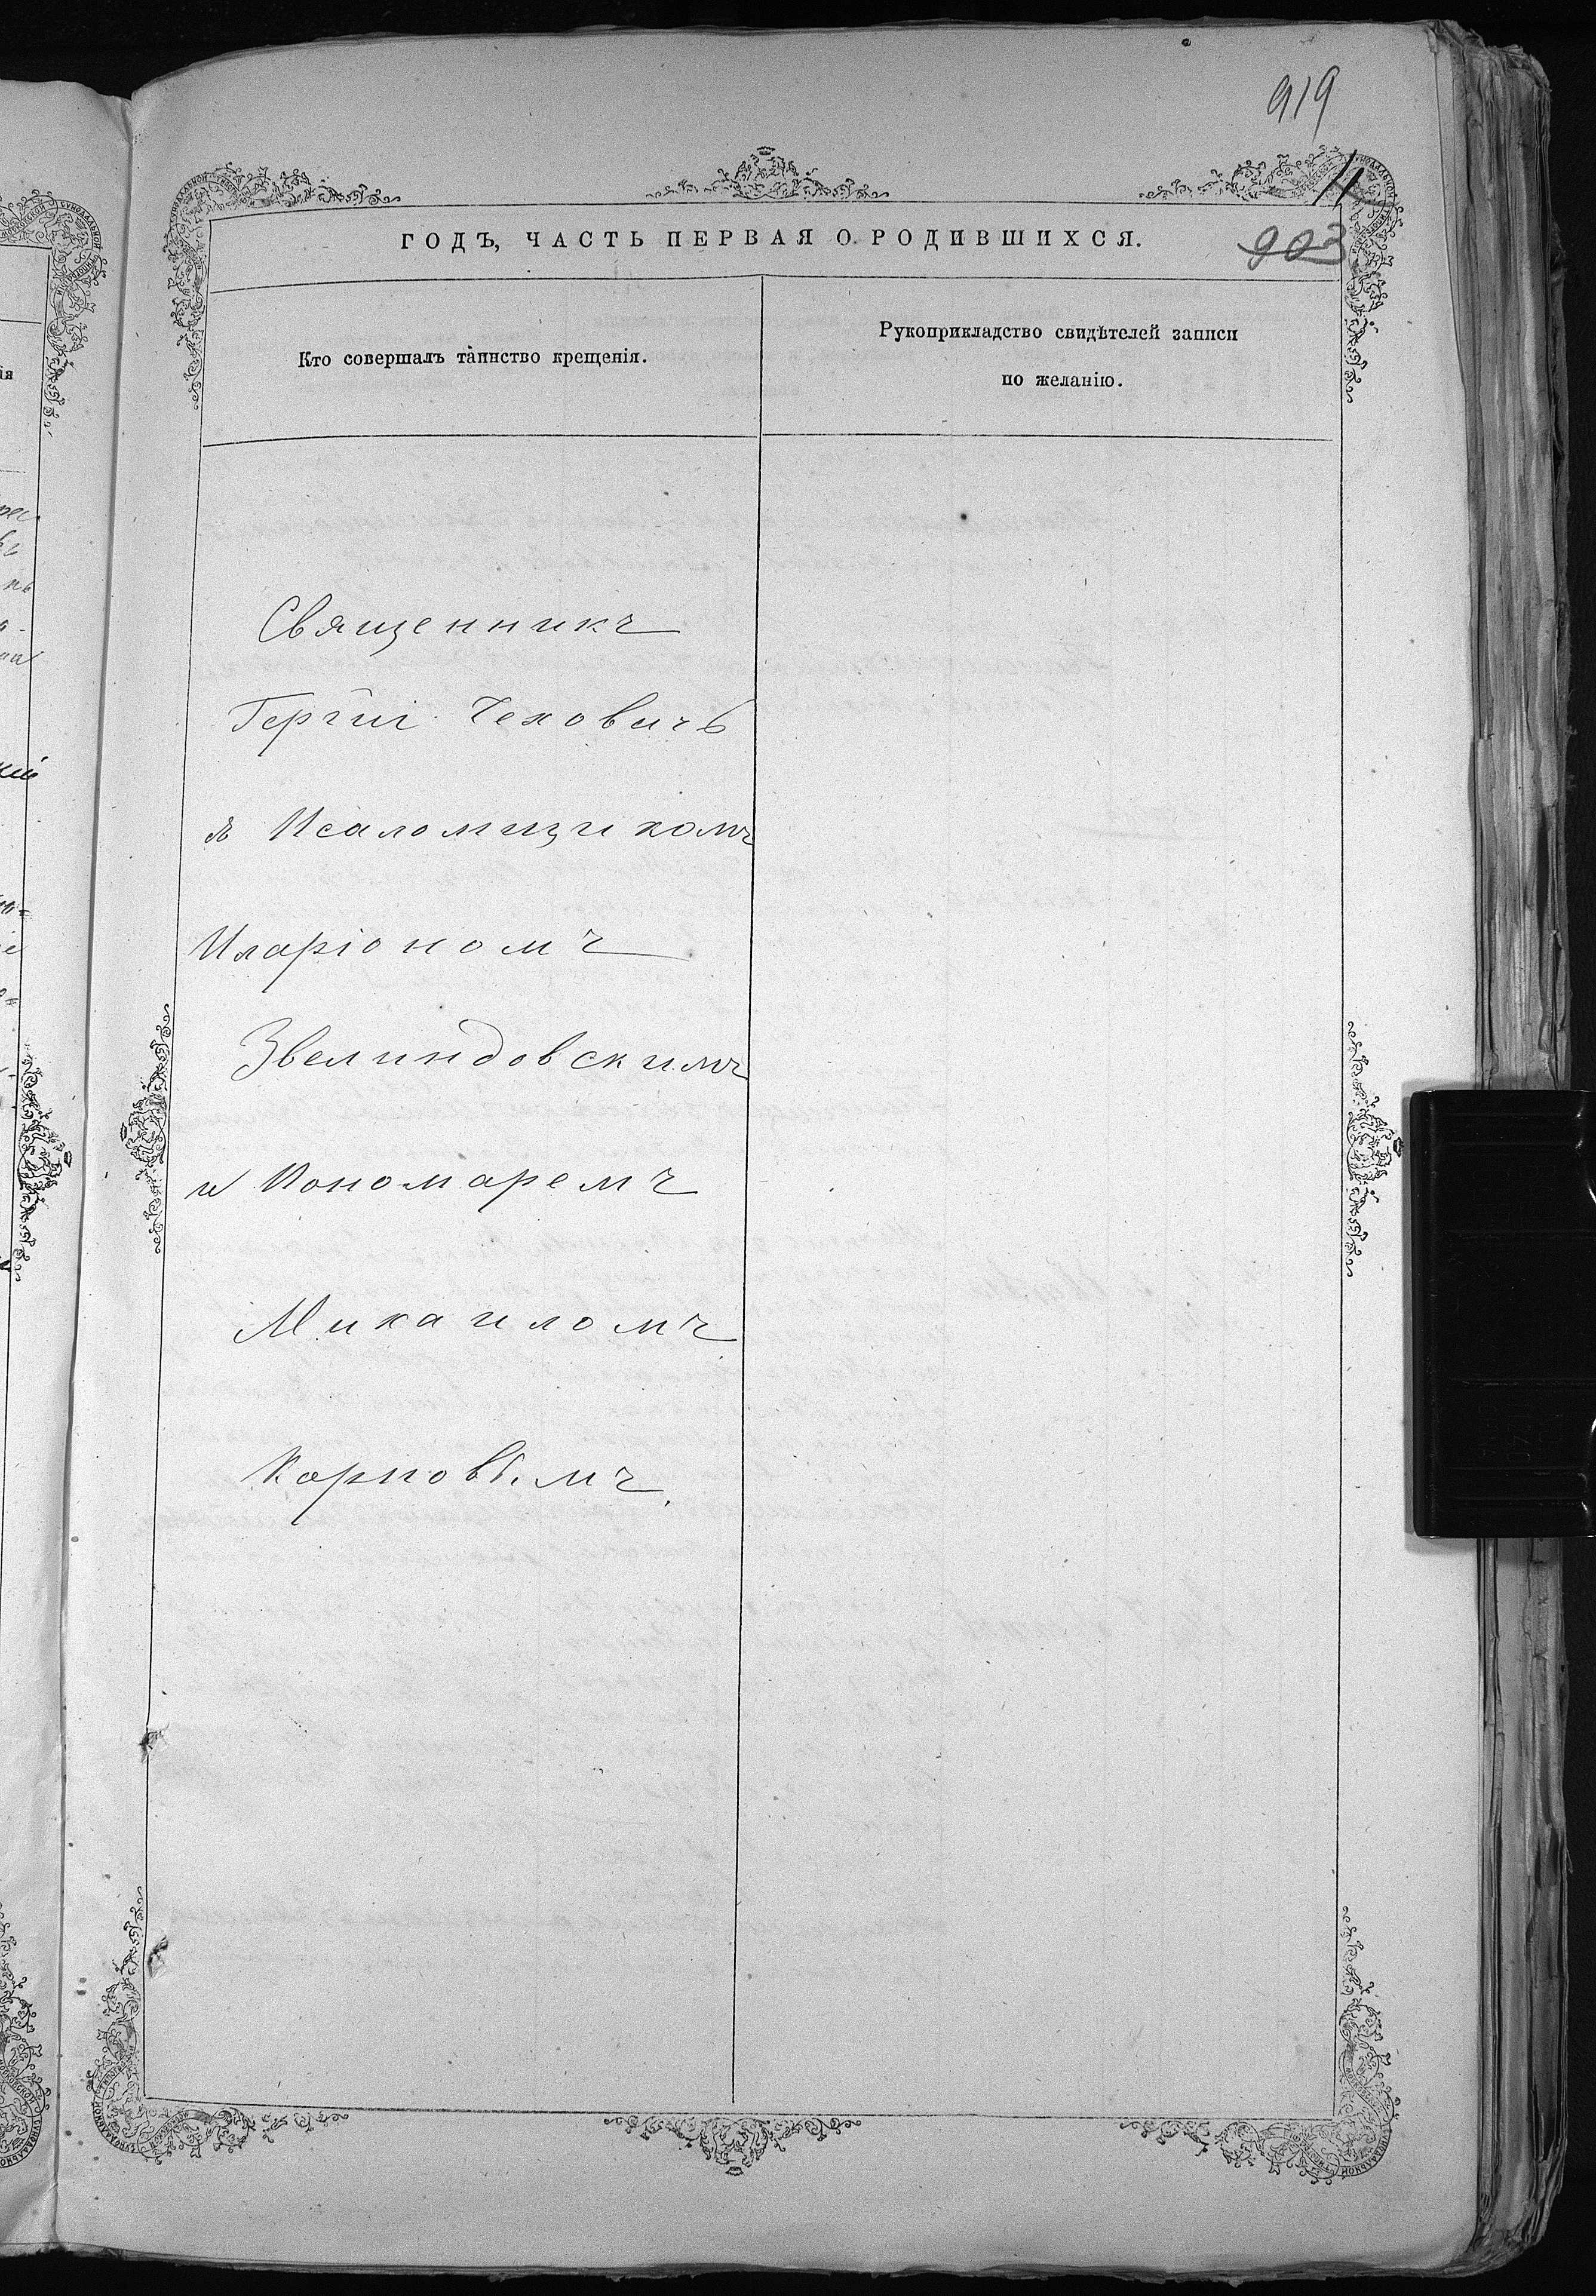 919
11
ГОДЪ, ЧАСТЬ ПЕРВАЯ О РОДИВШИХСЯ.
903
Кто совершалъ таинство крещенія.
Рукоприкладство свидѣтелей записи
по желанію.
Священникъ
Гергій Чеховичъ
съ Псаломщикомъ
Иларіономъ
Звелиндовскимъ
и Пономаремъ
Михаиломъ
Карповымъ.